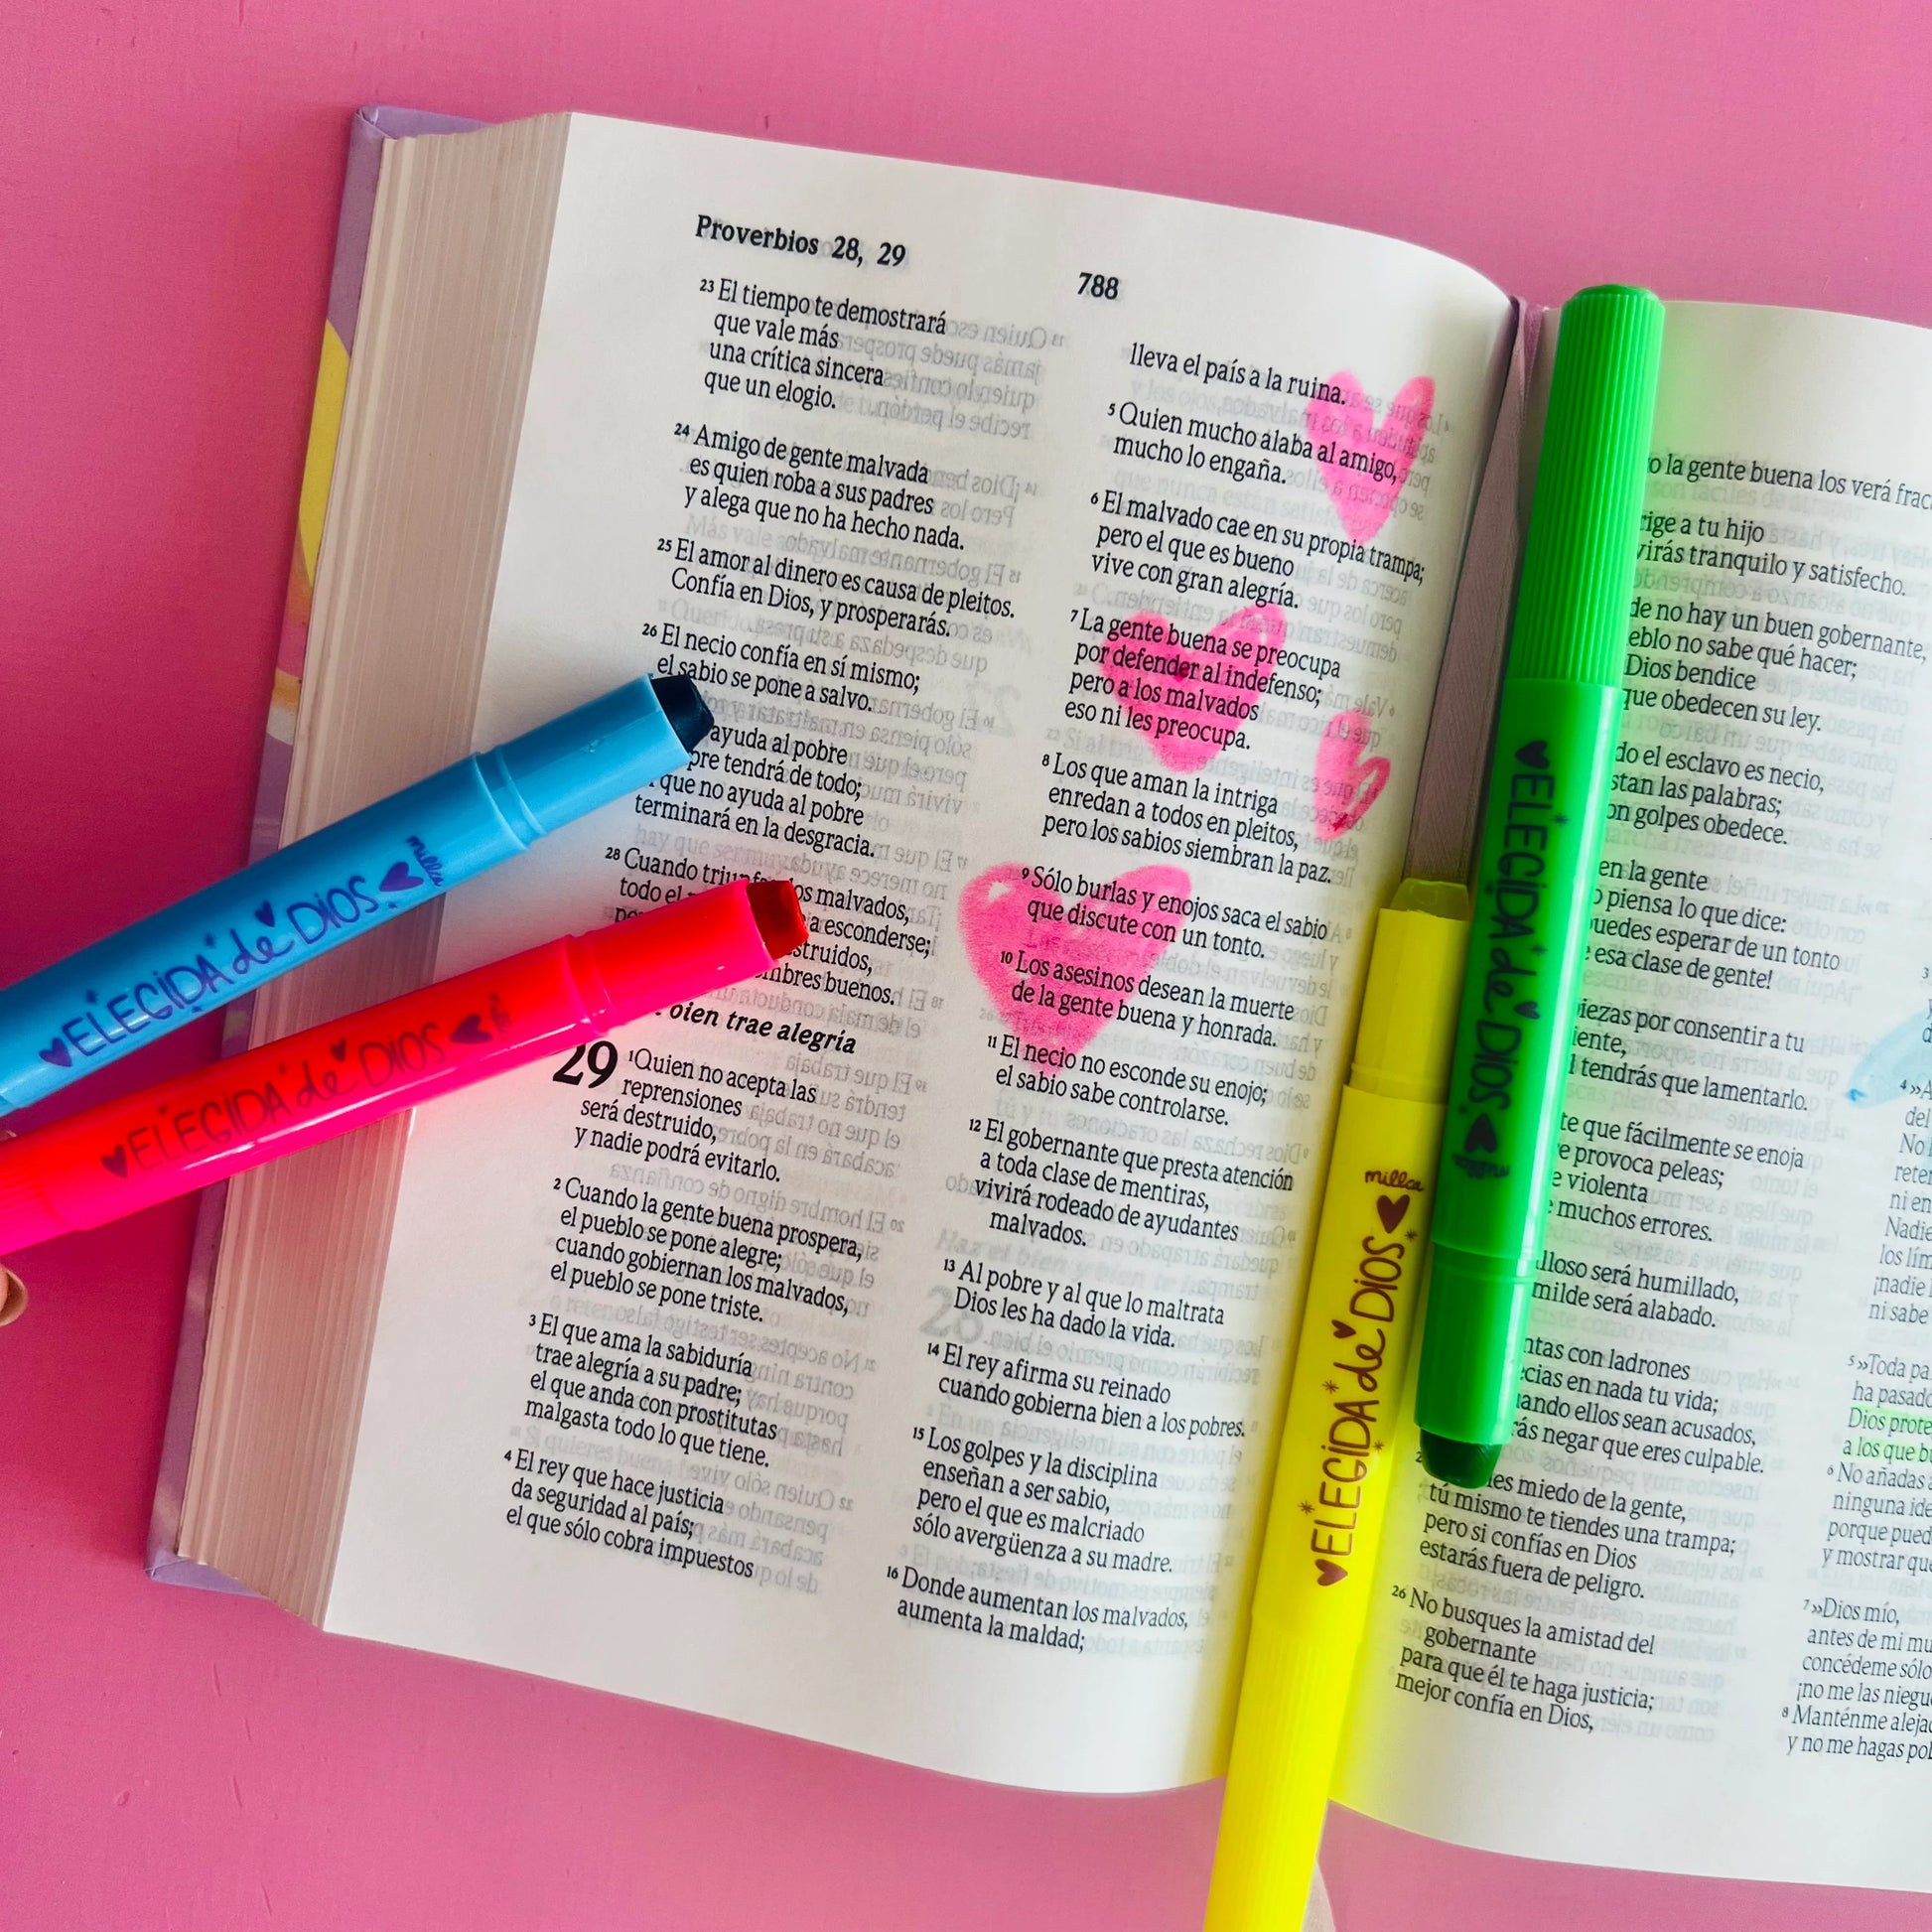 Proverbios 28, 29
788
23 El tiempo te demostrará
que vale más
una crítica sincera
que un elogio.
24 Amigo de gente malvada
es quien roba a sus padres
y alega que no ha hecho nada.
25 El amor al dinero es causa de pleitos.
Confía en Dios, y prosperarás.
26 El necio confía en sí mismo;
el sabio se pone a salvo.
ayuda al pobre
tendrá de todo;
que no ayuda al pobre
terminará en la desgracia.
28 Cuando los malvados,
todo el
esconderse;
buenos.
trae alegría
29
1 Quien no acepta las
reprensiones
será destruido,
y nadie podrá evitarlo.
2 Cuando la gente buena prospera,
el pueblo se pone alegre;
cuando gobiernan los malvados,
el pueblo se pone triste.
3 El que ama la sabiduría
trae alegría a su padre;
el que anda con prostitutas
malgasta todo lo que tiene.
4 El rey que hace justicia
da seguridad al país;
el que sólo cobra impuestos
lleva el país a la ruina.
5 Quien mucho alaba al amigo,
mucho lo engaña.
6 El malvado cae en su propia trampa;
pero el que es bueno
vive con gran alegría.
7 La gente buena se preocupa
por defender al indefenso;
pero a los malvados
eso ni les preocupa.
8 Los que aman la intriga
enredan a todos en pleitos,
pero los sabios siembran la paz.
9 Sólo burlas y enojos saca el sabio
que discute con un tonto.
10 Los asesinos desean la muerte
de la gente buena y honrada.
11 El necio no esconde su enojo;
el sabio sabe controlarse.
12 El gobernante que presta atención
a toda clase de mentiras,
vivirá rodeado de ayudantes
malvados.
13 Al pobre y al que lo maltrata
Dios les ha dado la vida.
14 El rey afirma su reinado
cuando gobierna bien a los pobres.
15 Los golpes y la disciplina
enseñan a ser sabio,
pero el que es malcriado
sólo avergüenza a su madre.
16 Donde aumentan los malvados,
aumenta la maldad;
la gente buena los verá
a tu hijo
tranquilo y satisfecho.
no hay un buen gobernante,
no sabe qué hacer;
Dios bendice
que obedecen su ley.
el esclavo es necio,
las palabras;
golpes obedece.
en la gente
piensa lo que dice:
esperar de un tonto
esa clase de gente!
por consentir a tu
tendrás que lamentarlo.
que fácilmente se enoja
provoca peleas;
violenta
muchos errores.
será humillado,
será alabado.
con ladrones
en nada tu vida;
ellos sean acusados,
negar que eres culpable.
miedo de la gente,
tú mismo te tiendes una trampa;
pero si confías en Dios
estarás fuera de peligro.
26 No busques la amistad del
gobernante
para que él te haga justicia;
mejor confía en Dios,
3
4 »A
del
No
ni en
Nadie
los
¡nadie
ni sabe
5 »Toda
ha pasado
Dios
a los que
6 No añadas
ninguna
porque
y mostrar
7 »Dios mío,
antes de mi
concédeme sólo
¡no me las
8 Manténme
y no me hagas
ELEGIDA de DIOS
millca
ELEGIDA de DIOS
ELEGIDA de DIOS
millca
ELEGIDA de DIOS